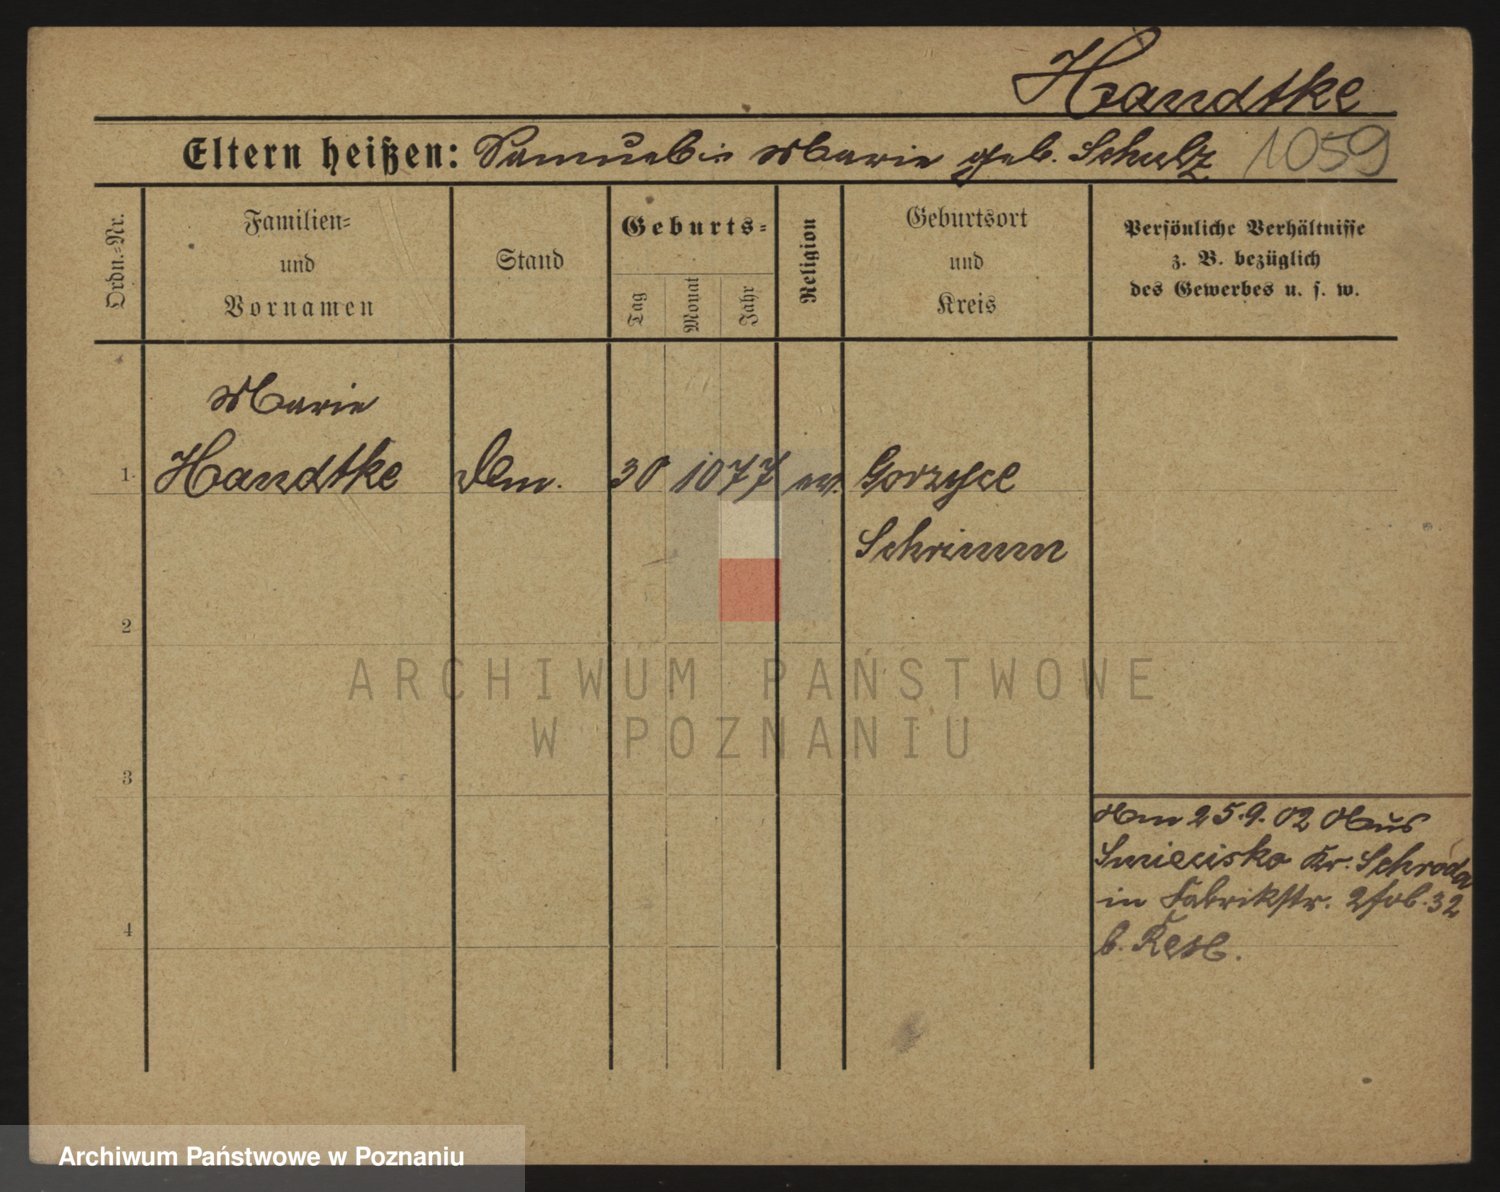 Handtke
Eltern heißen: Samuel u. Marie geb. Schulz 1059
Ordn.-Nr.
Familien-
und
Vornamen
Stand
Geburts-
Tag
Monat
Jahr
Religion
Geburtsort
und
Kreis
Persönliche Verhältnisse
z. B. bezüglich
des Gewerbes u. s. w.
Marie
1 Handtke 30 10 77 ev. Gorzyce
Schrimm
2
ARCHIWUM PAŃSTWOWE
W POZNANIU
3
Am 25.9.02 Aus
Smiecisko Kr. Schroda
in Fabrikstr. 32
4
b.
Archiwum Państwowe w Poznaniu